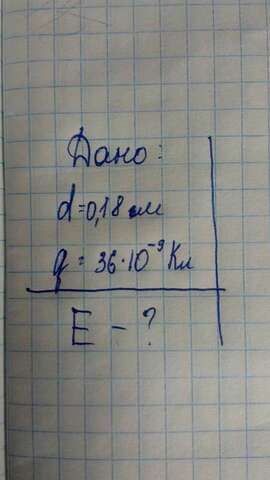 Дано:
d=0,18 м
q = 36·10⁻⁹ Кл
E - ?